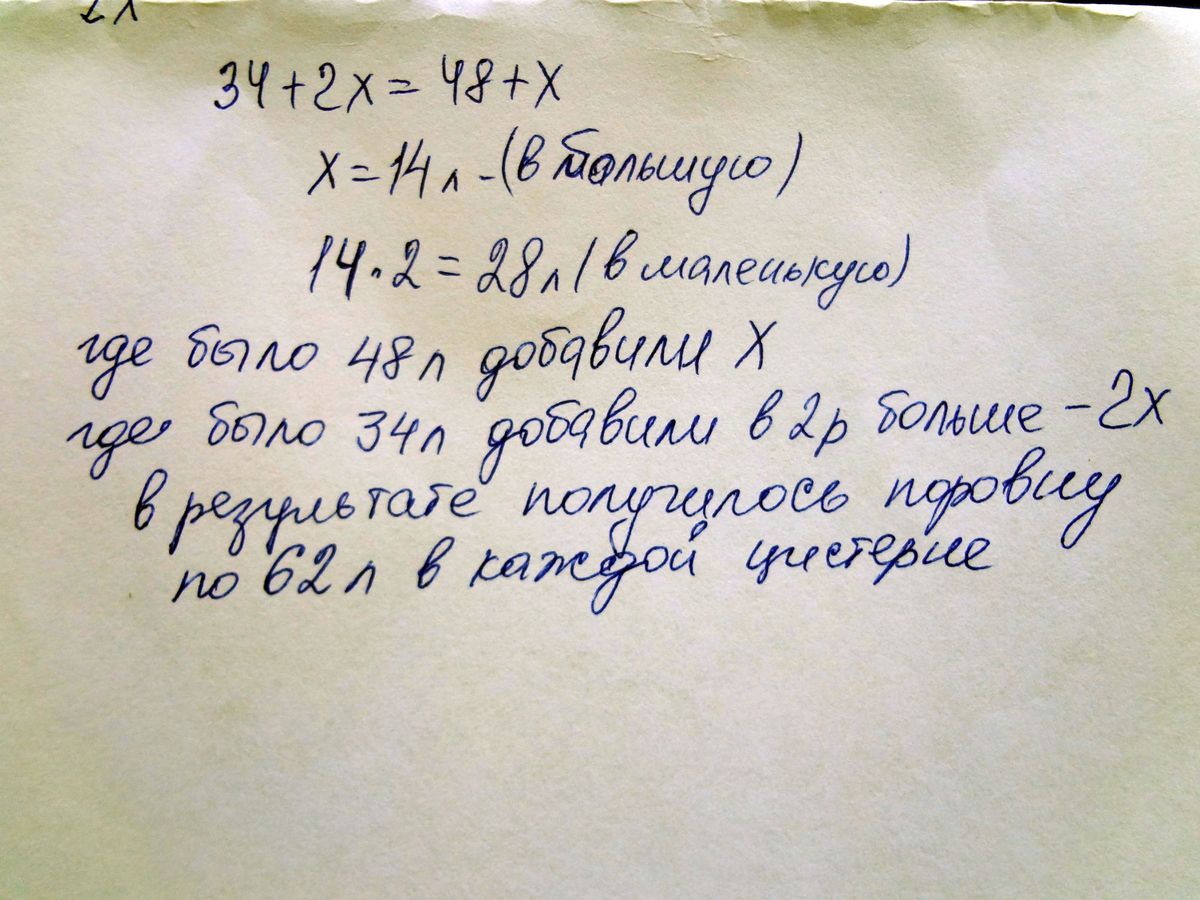 34+2x=48+x
x=14л-(в большую)
14·2=28л(в маленькую)
где было 48л добавили X
где было 34л добавили в 2р больше -2x
в результате получилось поровну
по 62л в каждой цистерне